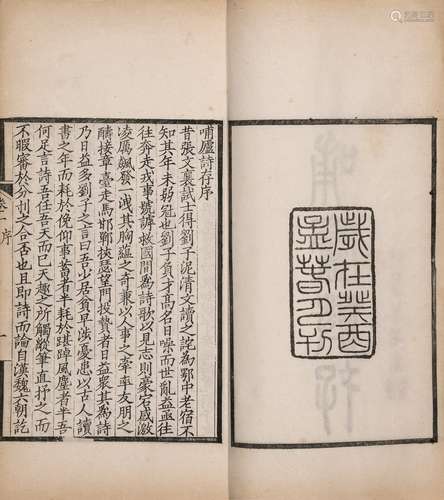 歲在癸酉
孟春月刊
哺廬詩存序
昔張文襄試士得劉子泥清文讀之詫為鄂中老宿不
知其年未弱冠也劉子負才髙名日噪而世亂益亟往
往奔走戎事號譸救國間為詩歌以見志則豪宕感激
凌厲飆發一洩其胸之奇兼以人事之牽率友朋之
酬接章臺走馬邯鄲挾瑟望門投贄者日益衆其為詩
乃日益多劉子之言曰吾少居貧早涉憂患以古人讀
書之年而耗於俛仰事蓄者半耗於踔風塵者半吾
何足言詩吾任吾天而已天趣之所觸縱筆直抒之而
不暇審於分刌之合否也且即詩而論自漢魏六朝訖
序
一